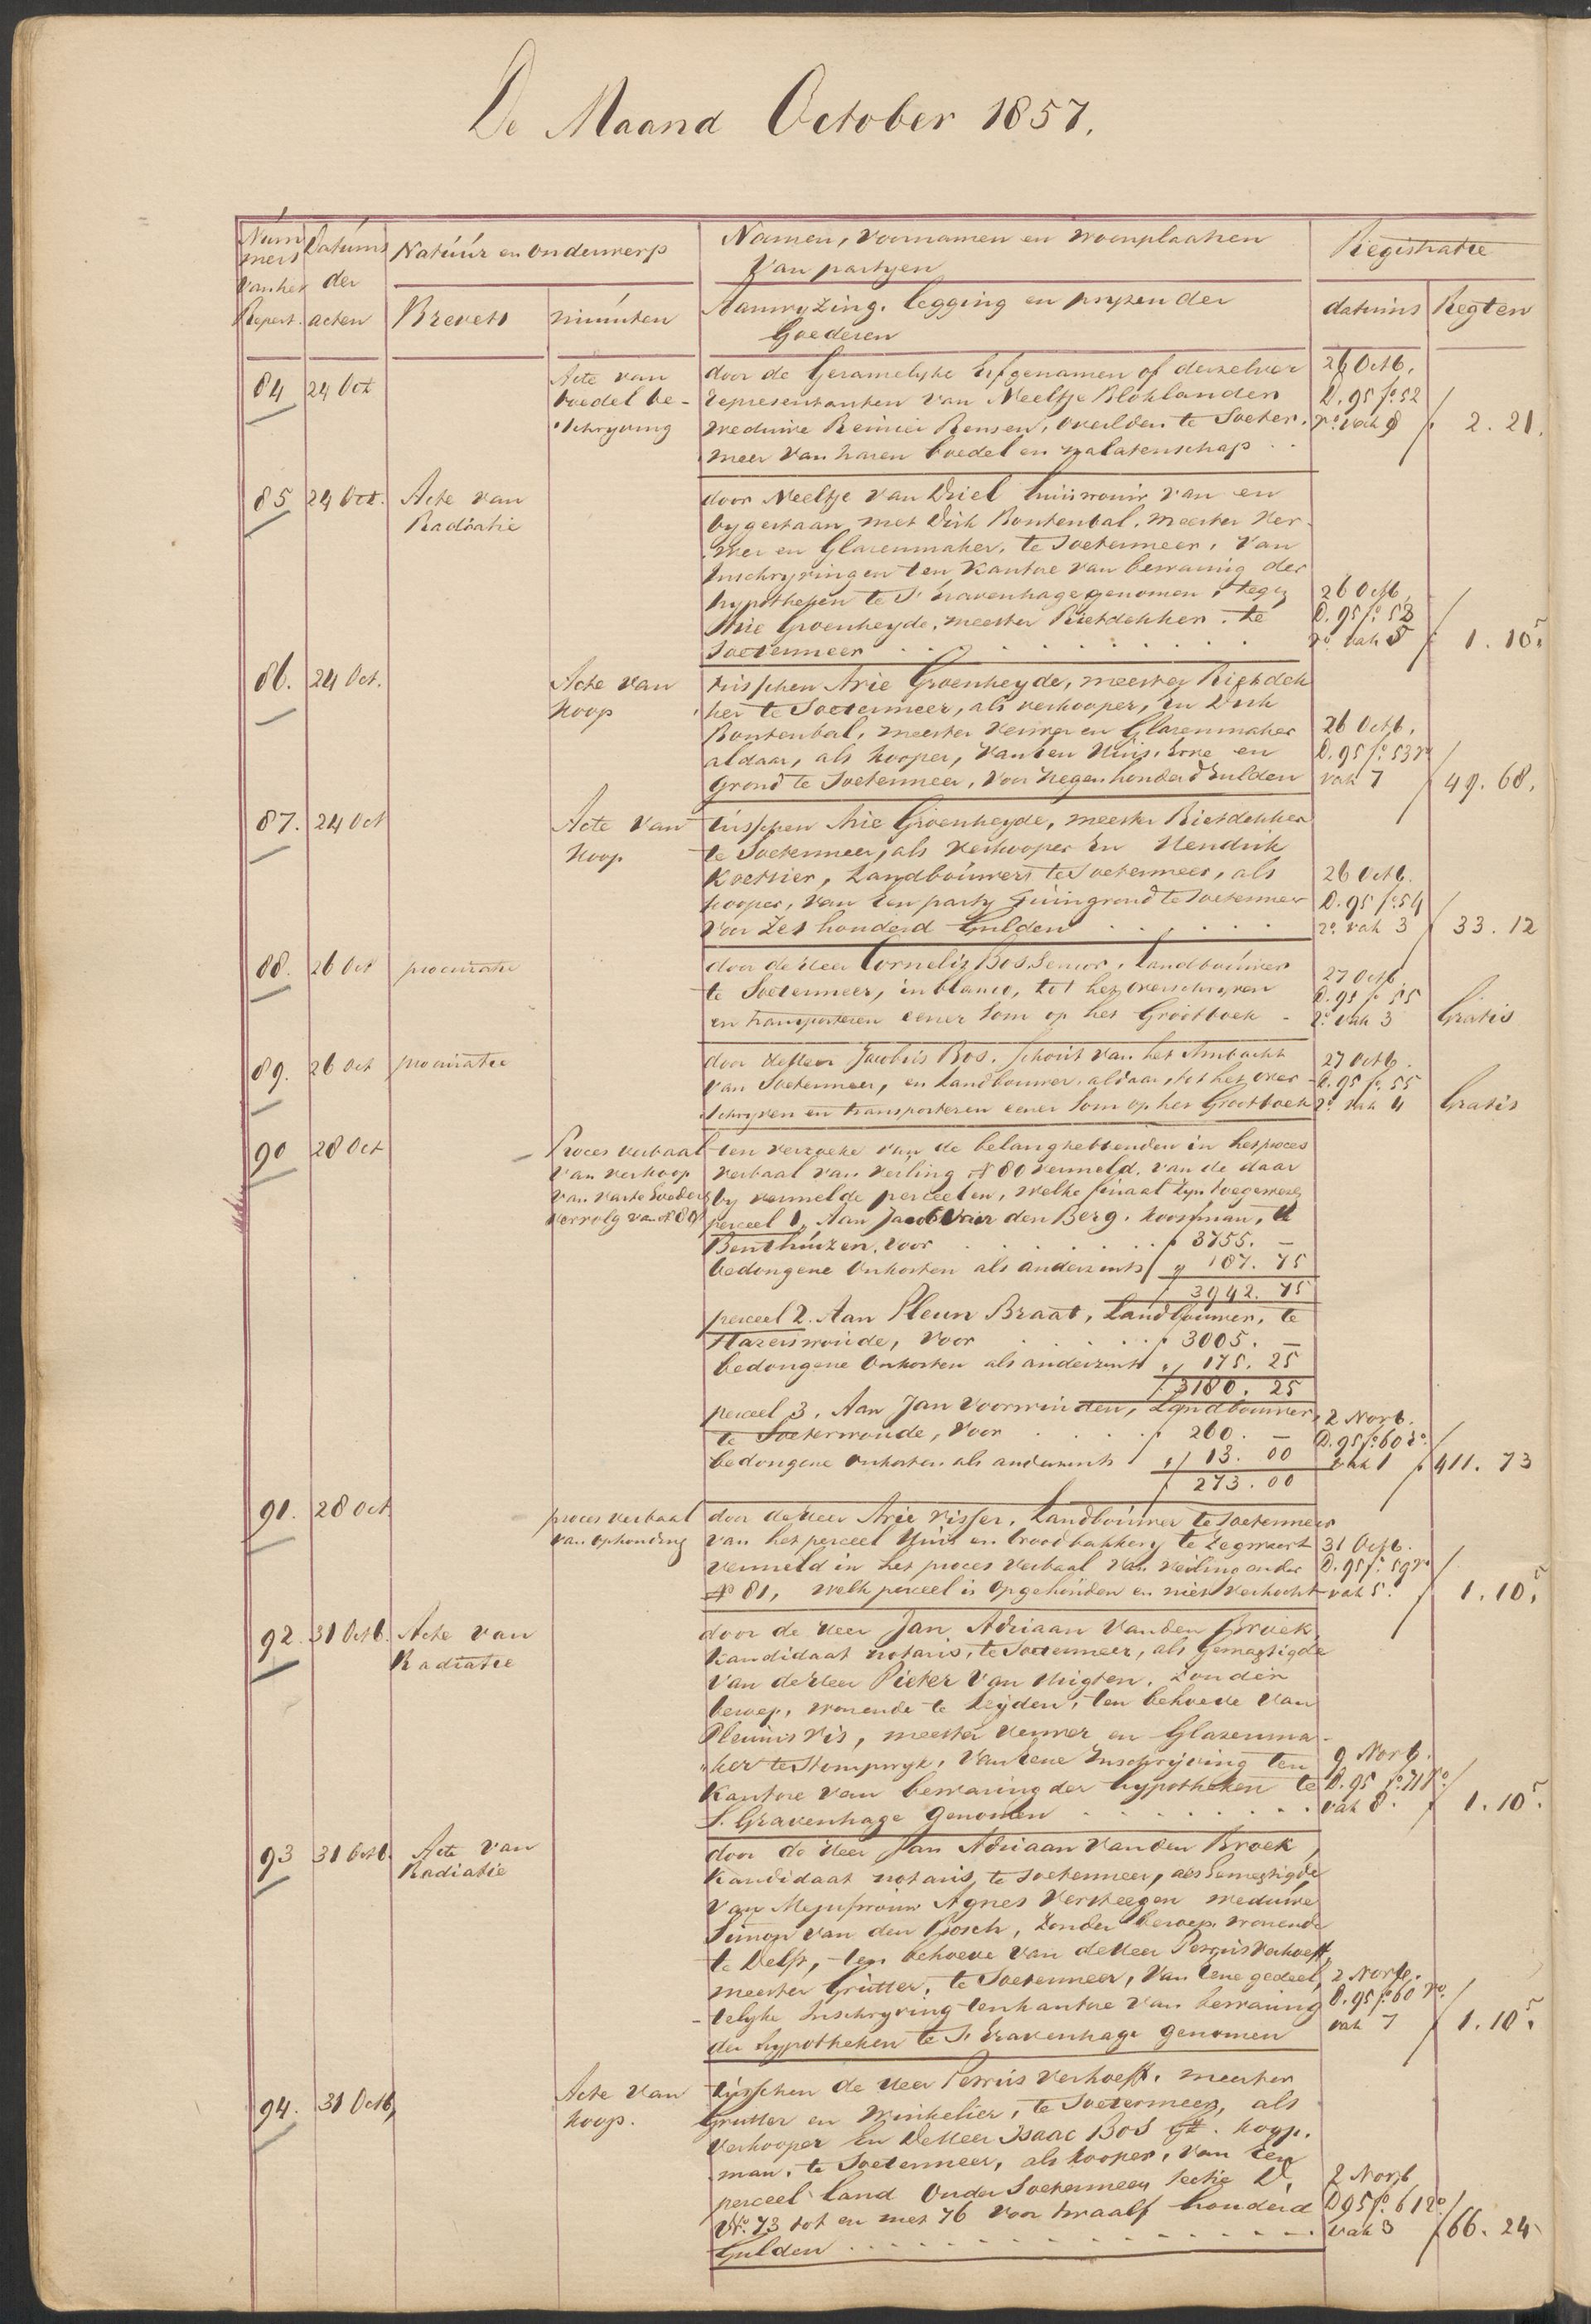 De Maand October 1857.
Num Datums Natuur en Onderwerp Namen, Voornamen en Woonplaatsen Registratie
mers Van partyen
van het der
Repert. acten Brevets minuuten Aanwyzing, legging en pryzen der datums Regten
Goederen
84 24 Oct Acte van door de Gezamelyke Erfgenamen of derzelver 26 Octb.
boedel be- representanten van Neeltje Bloklander D. 95 fo. 52
schryving weduwe Reinier Rensen, overleden te Soeter. ro. vak 8 f 2. 21.
meer van haren boedel en nalatenschap
85 24 Oct. Acte van door Neeltje van Driel huisvrouw van en
Radiatie bygestaan met Dirk Bontenbal, meester Ver-
wer en Glazenmaker, te Soetermeer, van
Inschryvingen ten Kantore van bewaring der
hypotheken te S' Gravenhage genomen, tegen 26 Octb.
Arie Groenheyde, meester Rietdekker te D. 95 fo. 53
Soetermeer ro. vak 5 f 1. 10.5
86. 24 Oct. Acte van tusschen Arie Groenheyde, meester Rietdek
Koop ker te Soetermeer, als verkooper, en Dirk
Bontenbal, meester Verwer en Glazenmaker 26 Octb.
aldaar, als kooper, van een Huis, Erve en D. 95 fo. 53 ro
grond te Soetermeer, voor Negenhonderd Gulden vak 7 f 49. 68.
87. 24 Oct Acte van tusschen Arie Groenheyde, meester Rietdekker
Koop te Soetermeer, als Verkooper en Hendrik
Koetsier, Landbouwers te Soetermeer, als 26 Octb.
kooper, van een party Tuingrond te Soetermeer D. 95 fo. 54
voor Zes honderd Gulden ro. vak 3 f 33. 12
88. 26 Oct procuratie door de Heer Cornelis Bos Senior, Landbouwer 27 Octb
te Soetermeer, in blanco, tot het overschryven D. 95 fo 55
en transporteren eener Som op het Grootboek ro. vak 3 Gratis
89. 26 Oct procuratie door de Heer Jacobus Bos, schout van het Ambacht 27 Octb.
van Soetermeer, en Landbouwer aldaar, tot het over- D. 95 fo. 55
schryven en transporteren eener Som op het Grootboek ro. vak 4 Gratis
90 28 Oct Proces verbaal ten verzoeke van de belanghebbenden in het proces
van verkoop verbaal van Veiling No 80 vermeld, van de daar
van Vaste Goederen by vermelde perceelen, welke finaal zyn toegewezen
vervolg van No 80 perceel 1, Aan Jacob Van den Berg, Koopman, te
Benthuizen, voor f 3755. —
bedongene Onkosten als anderzints f 187. 75
f 3942. 75
perceel 2. Aan Pleun Braat, Landbouwer, te
Hazerswoude, voor f 3005. —
bedongene Onkosten als anderzints f 175. 25
f 3180. 25
perceel 3. Aan Jan Voorwinden, Landbouwer, 2 Novb.
te Soeterwoude, voor f 260. — D. 95 fo. 60 ro.
bedongene onkosten als anderzints f 13. 00 vak 1 f 411. 73
f 273. 00
91. 28 Oct proces verbaal door de Heer Arie Visser, Landbouwer te Soetermeer
van Ophouding van het perceel Huis en broodbakkery te Zegwaart 31 Octb.
vermeld in het proces Verbaal van Veiling onder D. 95 fo. 59 vo
No 81, welk perceel is Opgehouden en niet Verkocht vak 5. f 1. 10.5
92. 31 Octb. Acte van door de Heer Jan Adriaan Van den Broek,
Radiatie Kandidaat notaris, te Soetermeer, als gemagtigde
van de Heer Pieter Van Huigten, zonder
beroep, wonende te Leyden, ten behoeve van
Pleunis Vis, meester Verwer en Glazenma-
ker te Stompwyk, van eene Inschryving ten 9 Novb.
Kantore van bewaring der hypotheken te D. 95 fo. 71 ro.
S. Gravenhage genomen vak 8. f 1. 10.5
93 31 Octb. Acte van door de Heer Jan Adriaan Van den Broek,
Radiatie Kandidaat notaris, te Soetermeer, als Gemagtigde
van Mejufvrouw Agnes Versteegen weduwe
Simon van den Bosch, zonder beroep wonende
te Delft, ten behoeve van de Heer Petrus Verhoeff,
meester Grutter, te Soetermeer, van eene gedeel- 2 Novb.
telyke Inschryving ten kantore van bewaring D. 95 fo. 60 vo.
der hypotheken te S. Gravenhage genomen vak 7 f 1. 10.5
94. 31 Octb, Acte van tusschen de Heer Petrus Verhoeff, meester
Koop. Grutter en Winkelier, te Soetermeer, als
Verkooper en De Heer Isaac Bos Gz. Koop.
man, te Soetermeer, als kooper, van een
perceel land Onder Soetermeer Sectie D, 2 Novb
No. 73 tot en met 76 voor twaalf honderd D 95 fo. 61 ro
Gulden vak 3 f 66. 24